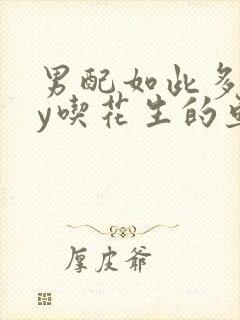 男配如此多
y喫花生的
厚皮爷